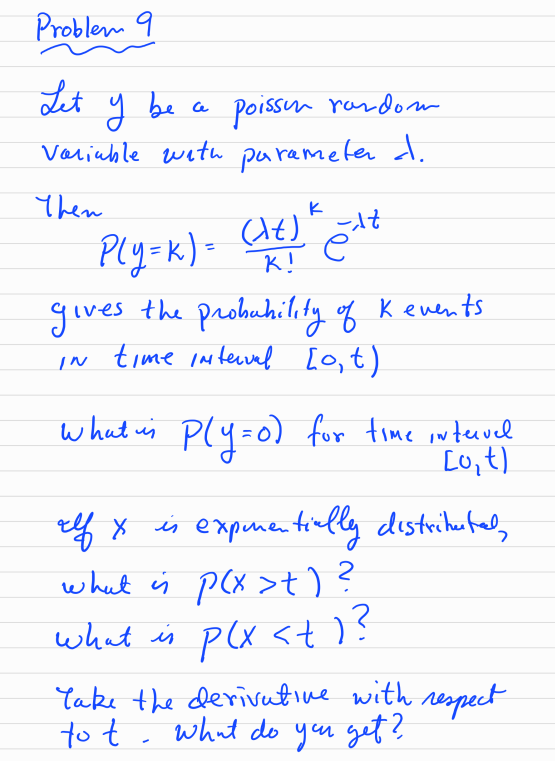 Problem 9
Let y be a poisson random
variable with parameter λ.
Then
P(y=k) = (λt)^k / k! e^-λt
gives the probability of k events
in time interval [0,t)
What is P(y=0) for time interval
[0,t)
If x is exponentially distributed,
what is P(x >t) ?
what is P(x <t )?
Take the derivative with respect
to t. What do you get?